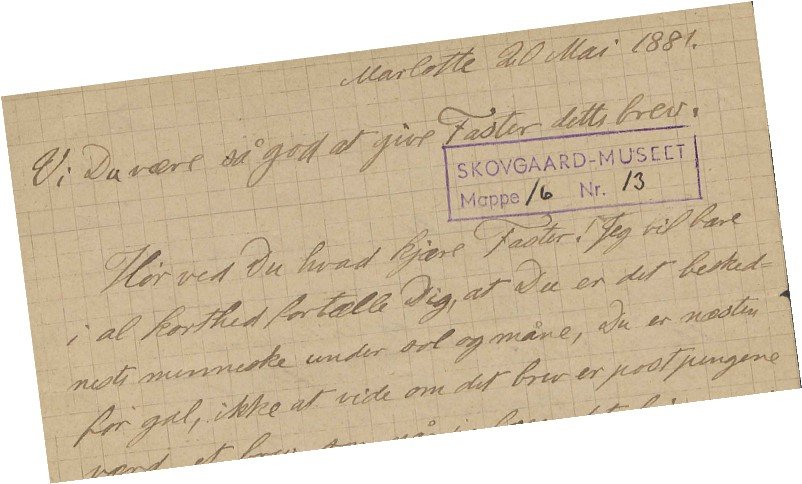 Marlotte 20 Mai 1881.
Vi Du være så god at give Faster dette brev.
SKOVGAARD-MUSEET
Mappe 16 Nr. 13
Hør ved Du hvad kjære Faster! Jeg vil bare
i al korthed fortælle Dig, at Du er det besked-
neste menneske under sol og måne, Du er næsten
for gal, ikke at vide om det brev er postpengene
værd, et brev